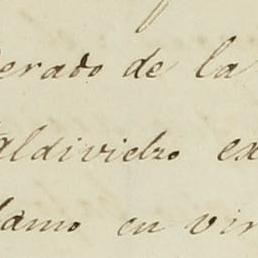 erado de la
aldivielzo ex
lamo en vir